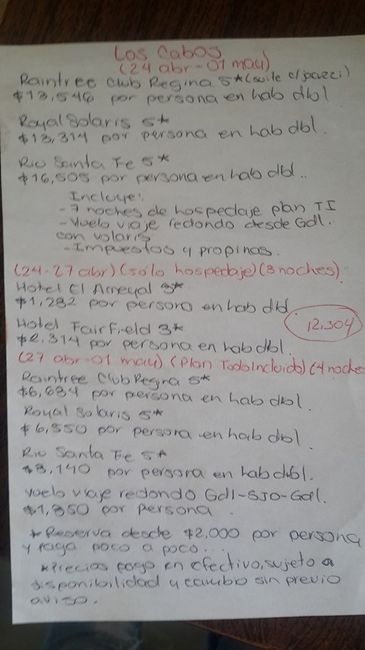 Los Cabos
(24 abr - 01 may)
Raintree Club Regina 5* (suite c/jacuzzi)
$13,546 por persona en hab dbl.
Royal Solaris 5*
$13,314 por persona en hab dbl.
Riu Santa Fe 5*
$16,505 por persona en hab dbl..
Incluye:
- 7 noches de hospedaje plan TI
- Vuelo viaje redondo desde Gdl.
con volaris
- Impuestos y propinas.
(24-27 abr) (solo hospedaje) (3 noches)
Hotel El Arreyal 3*
$1,282 por persona en hab dbl
12,304
Hotel Fairfield 3*
$2,314 por persona en hab dbl.
(27 abr - 01 may) (Plan Todo Incluido) (4 noche
Raintree Club Regina 5*
$6,634 por persona en hab dbl.
Royal Solaris 5*
$6,550 por persona en hab dbl.
Riu Santa Fe 5*
$8,140 por persona en hab dbl.
Vuelo viaje redondo Gdl-SJO-Gdl.
$1,850 por persona.
* Reserva desde $2,000 por persona
y paga poco a poco...
* Precios pago en efectivo, sujeto a
disponibilidad y cambio sin previo
aviso.